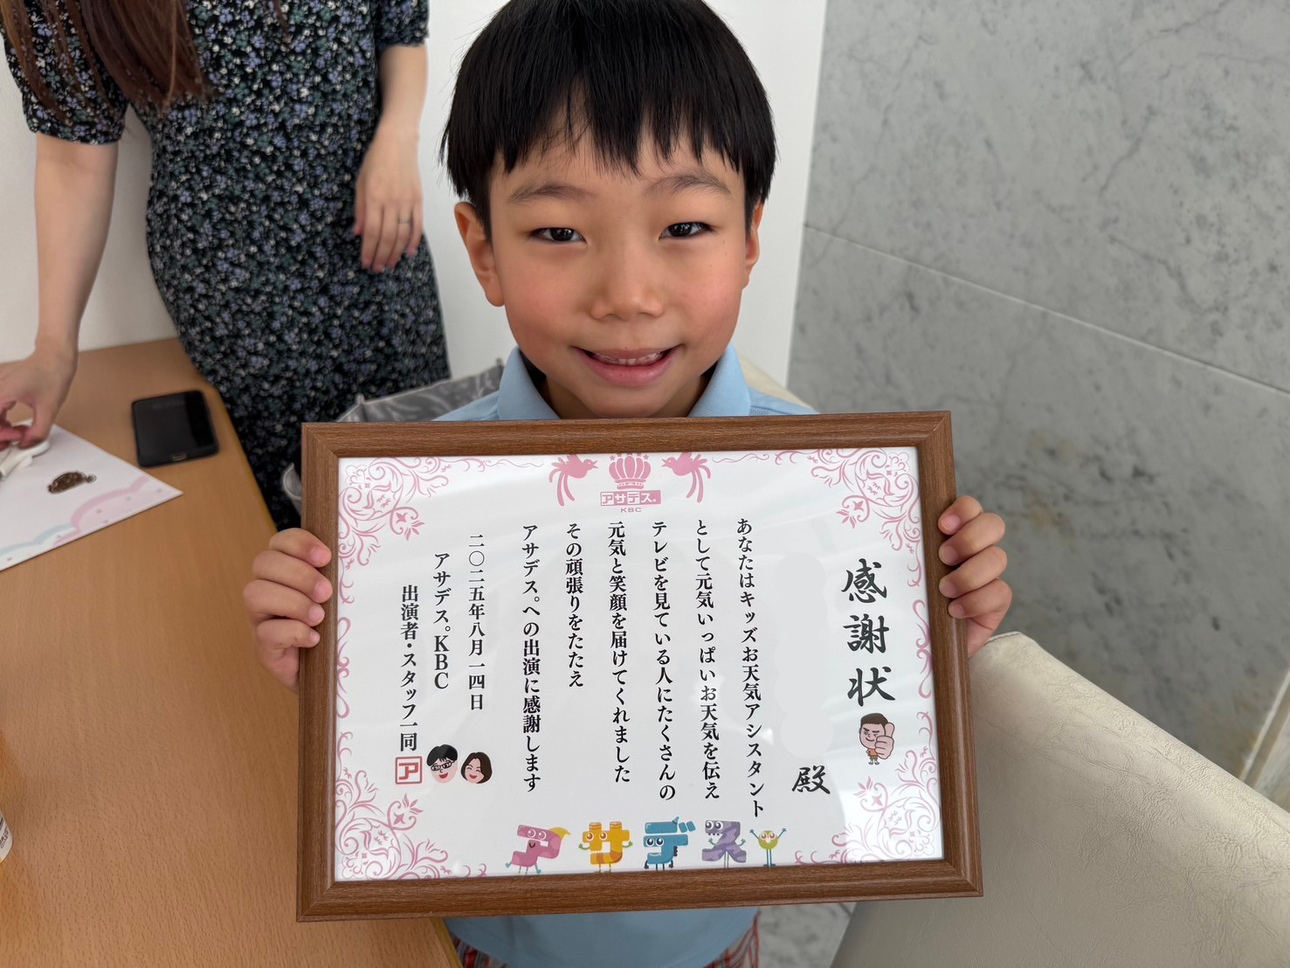 アサデス。
KBC
感謝状
殿
あなたはキッズお天気アシスタント
として元気いっぱいお天気を伝え
テレビを見ている人にたくさんの
元気と笑顔を届けてくれました
その頑張りをたたえ
アサデス。への出演に感謝します
二〇二五年八月一四日
アサデス。KBC
出演者・スタッフ一同
ア
アサデス。